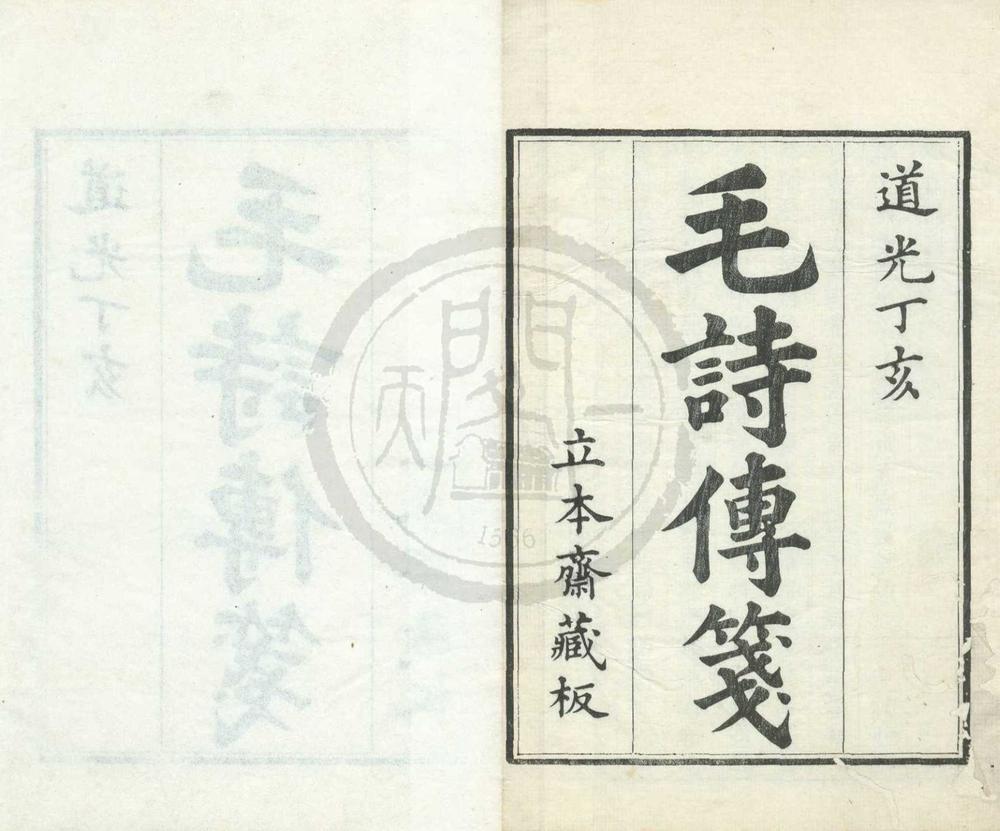 道光丁亥
毛詩傳箋
立本齋藏板
天一閣
1566